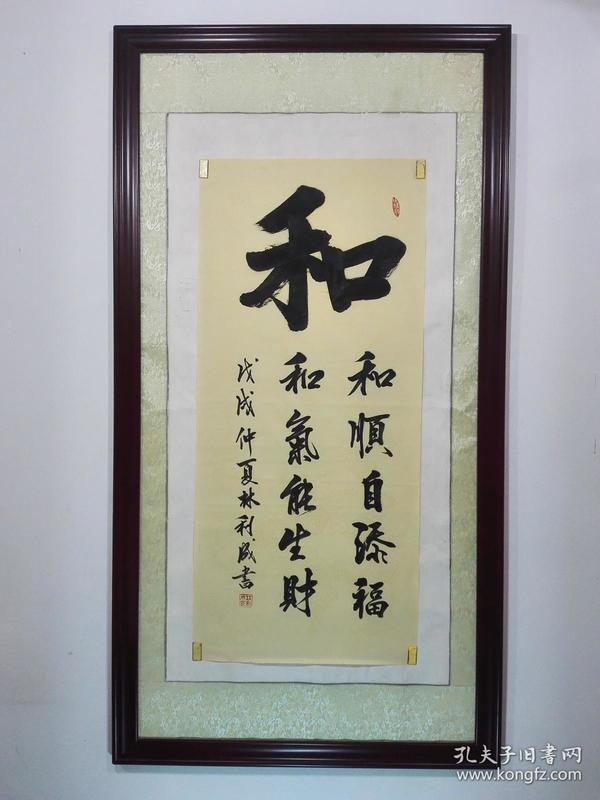 和
和順自添福
和氣能生財
戊戌仲夏林利成書
孔夫子旧書网
www.kongfz.com